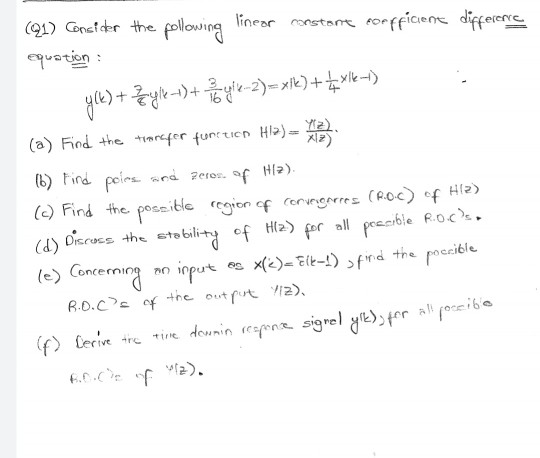 (Q1) Consider the following linear constant coefficient difference
equation :
y(k) + 7/8 y(k-1) + 3/16 y(k-2) = x(k) + 1/4 x(k-1)
(a) Find the transfer function H(z) = Y(z)/X(z).
(b) Find poles and zeros of H(z).
(c) Find the possible region of convergences (R.O.C) of H(z)
(d) Discuss the stability of H(z) for all possible R.O.C's.
(e) Concerning an input as x(k) = (k-1), find the possible
R.O.C's of the output Y(z).
(f) Derive the time domain response signal y(k), for all possible
R.O.C's of Y(z).